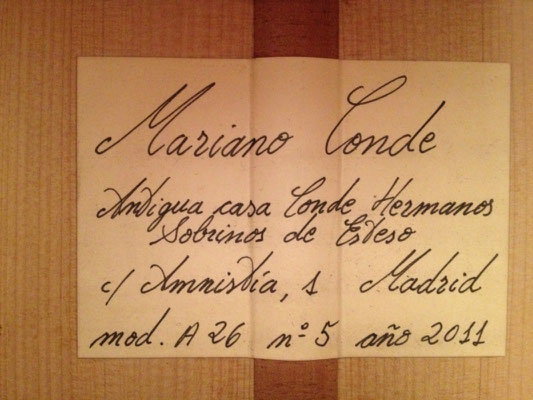 Mariano Conde
Antigua casa Conde Hermanos
Sobrinos de Esteso
c/ Amnistía, 1 Madrid
mod. A 26 nº 5 año 2011